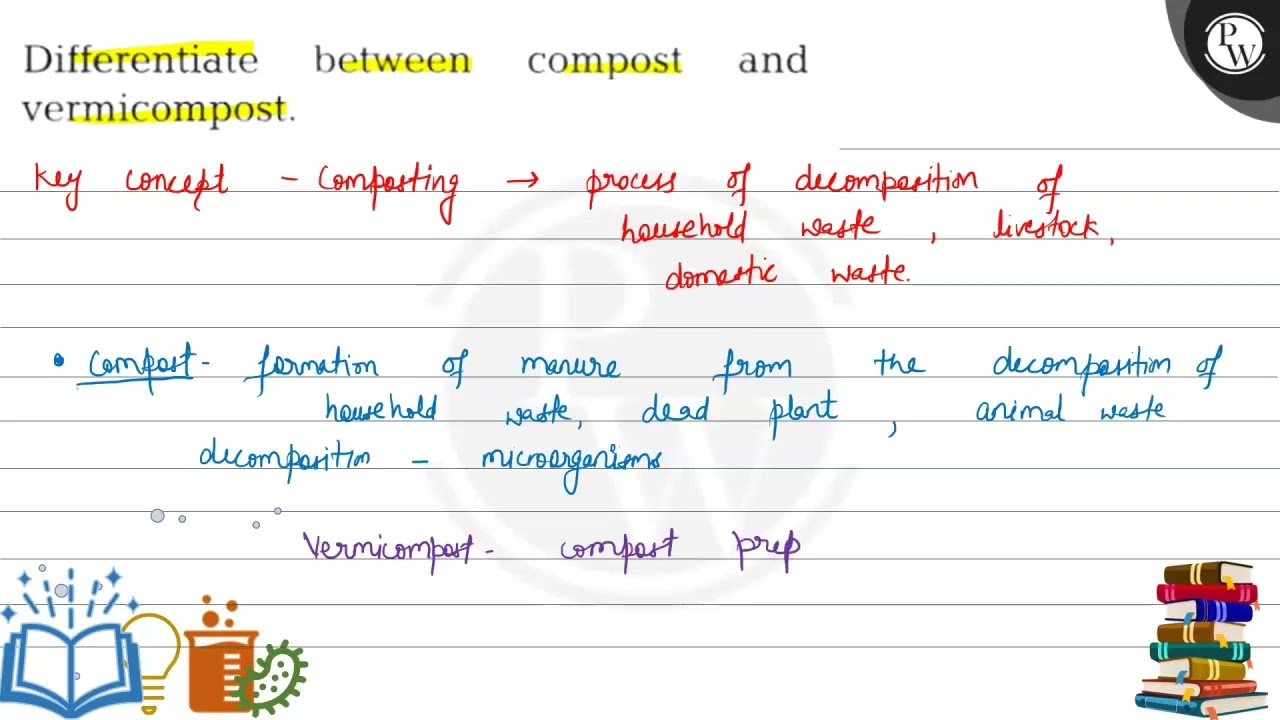 Differentiate between compost and
vermicompost.
PW
Key concept - Composting → process of decomposition of
household waste, livestock,
domestic waste.
• Compost - formation of manure from the decomposition of
household waste, dead plant, animal waste
decomposition - microorganisms
Vermicompost - compost prep